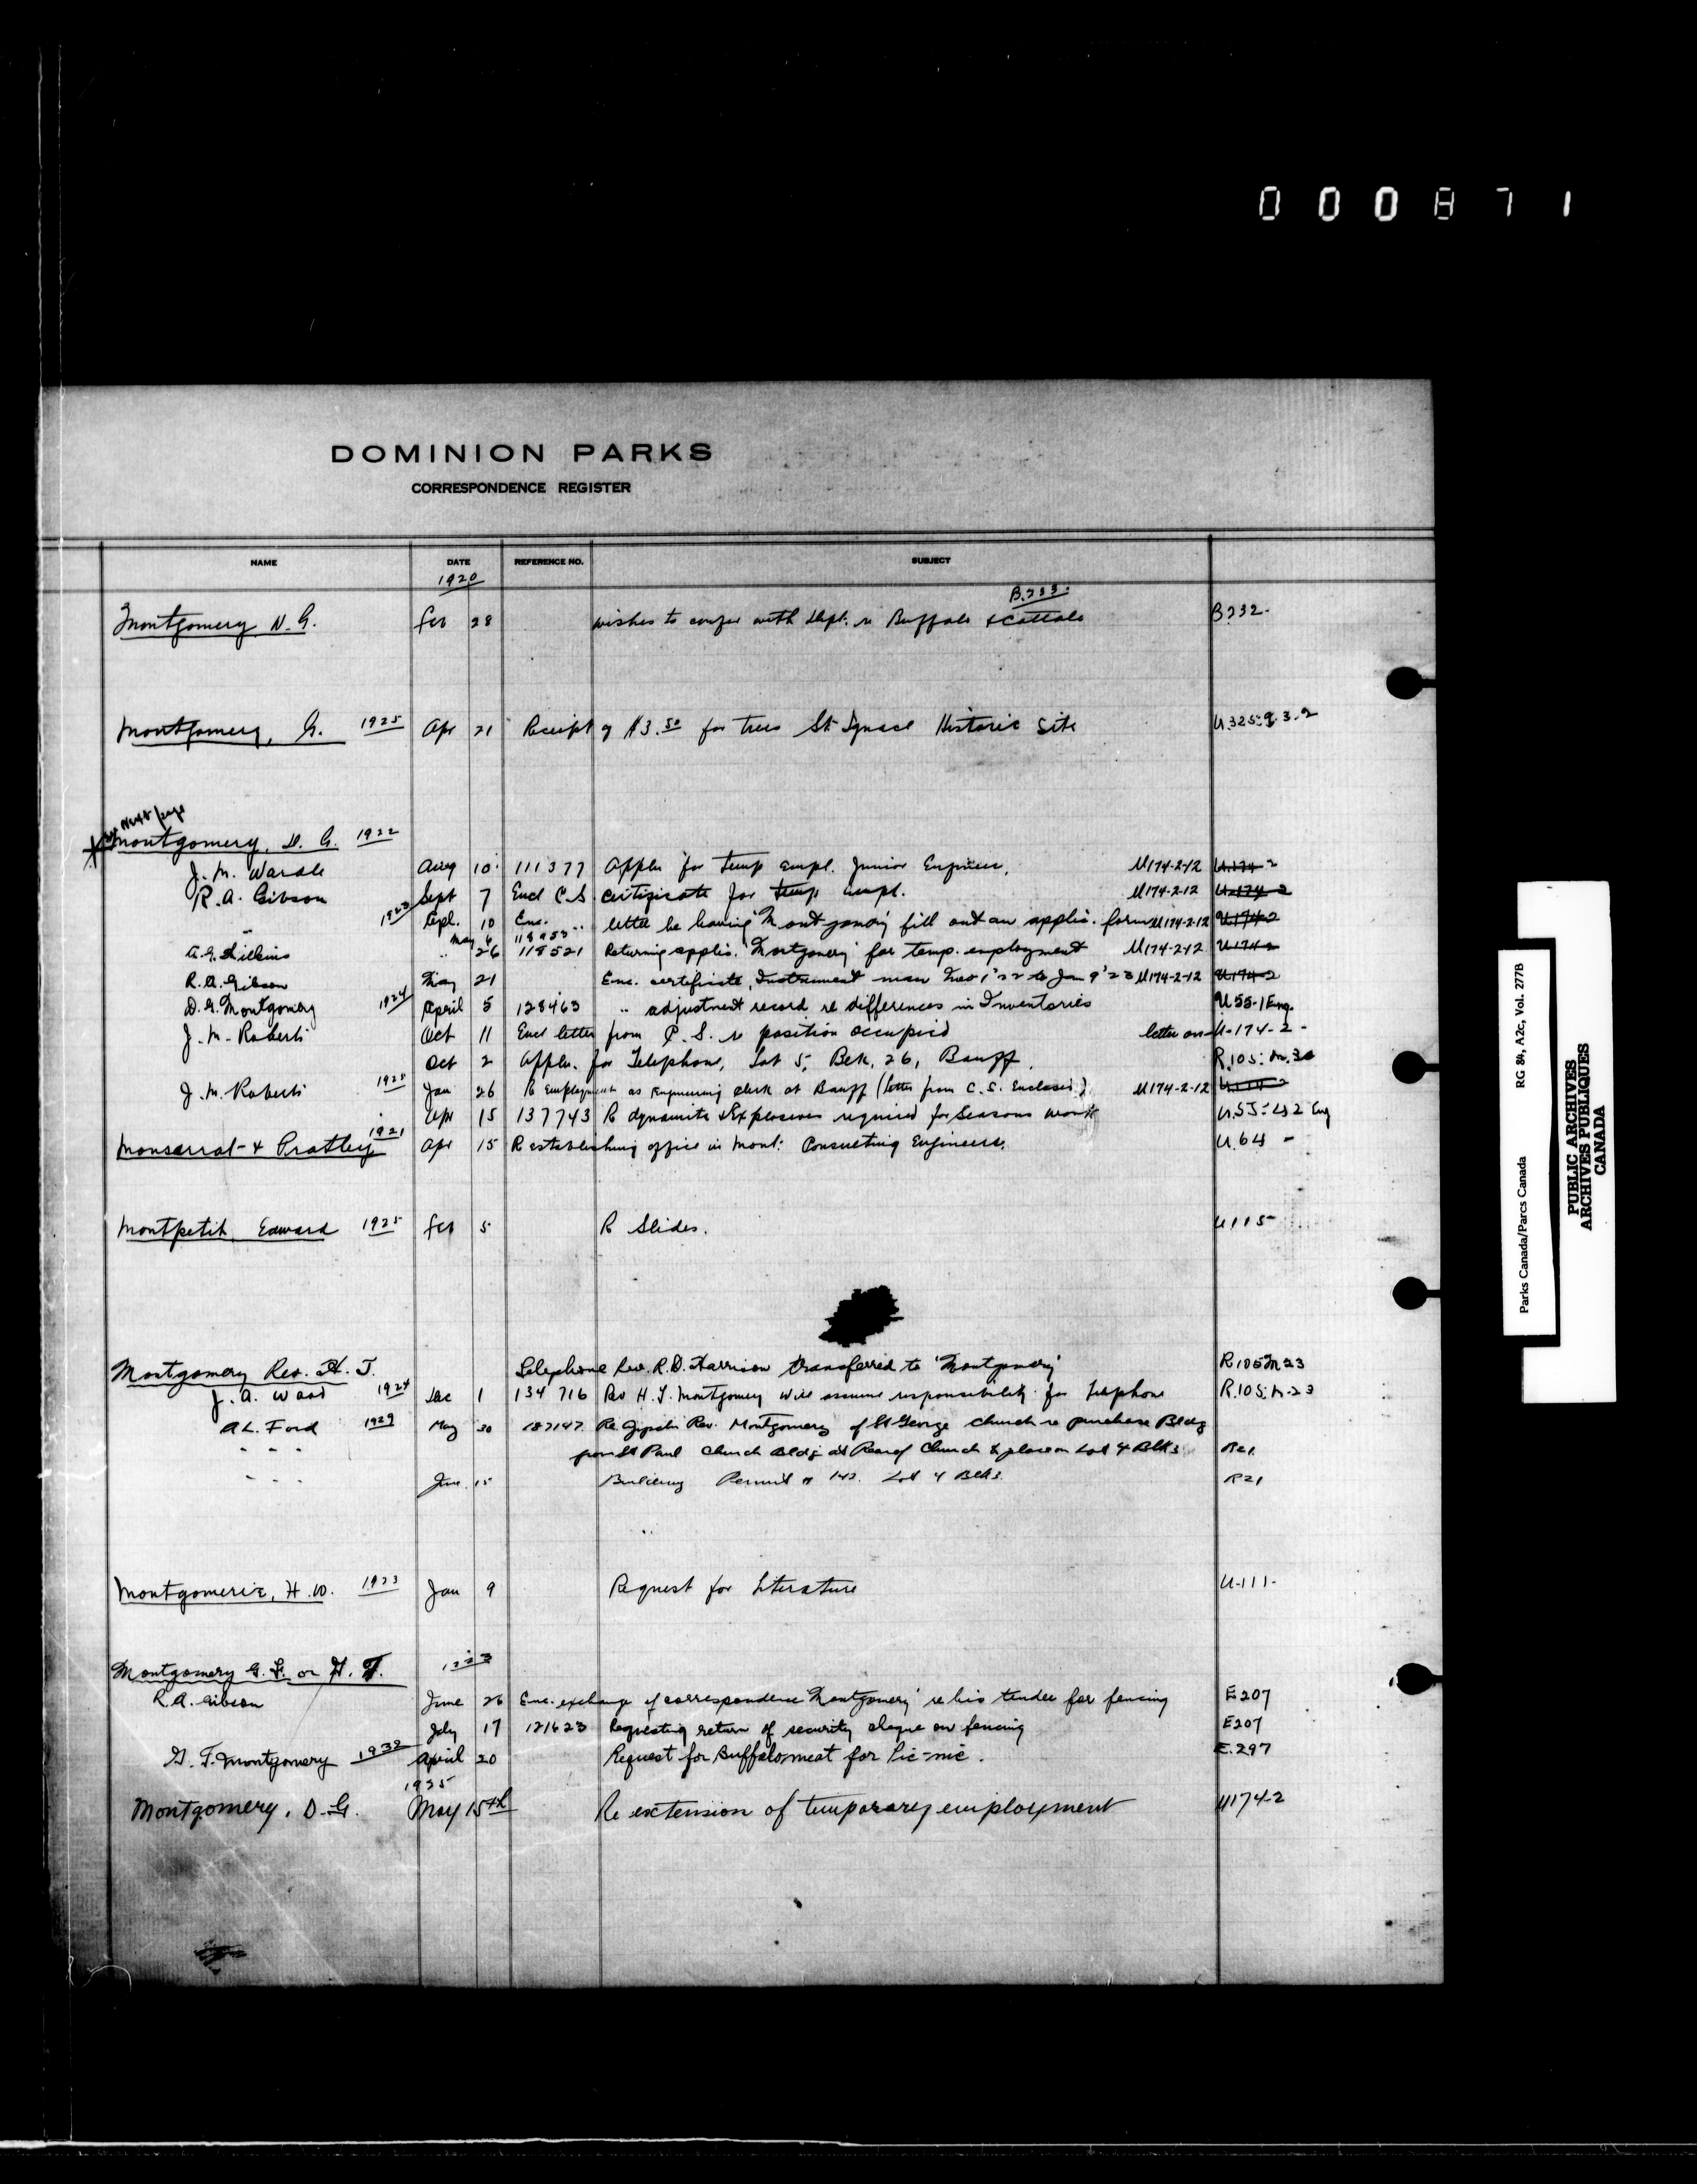 0 0 0 8 7 1
DOMINION PARKS
CORRESPONDENCE REGISTER
NAME DATE REFERENCE NO. SUBJECT
1920
B.233.
Montgomery N. G. Feb 28 wishes to confer with Dept. re Buffalo & Cattalo B232.
Montgomery, G. 1925 Apr 21 Receipt of $3.50 for trees St Ignace Historic Site U.325-9.3.2
Next page
Montgomery, D. G. 1922
J. M. Wardle Aug 10 111377 Appln for Temp empl. Junior Engineer. U174-2-12 U.174-2
R. A. Gibson Sept 7 Encl C.S. certificate for temp empl. U174-2-12 U-174-2
1923 Apl. 10 Enc. letter be having 'Montgomery' fill out an applic. form U174-2-12 U174-2
May 4
A. G. Stilkins " 26 118521 Returning applic. 'Montgomery' for temp. employment U174-2-12 U174-2
R. A. Gibson May 21 Enc. certificate, Instrument man Nov 1 '22 to Jan 9 '23 U174-2-12 U174-2
D. G. Montgomery 1924 April 5 128463 " adjustment record re differences in Inventories U55-1 Eng.
J. M. Roberts Oct 11 Encl letter from C. S. re position occupied letter on U-174-2-
Oct 2 Appln. for Telephone, Lot 5, Blk. 26, Banff. R.105-M.30
J. M. Roberts 1925 Jan 26 R Employment as Engineering Clerk at Banff (letter from C. S. Enclosed.) U174-2-12
Apr 15 137743 R dynamite & Explosives required for Seasons work U.55-2 Eng
Monsarrat & Pratley 1921 Apr 15 R establishing office in Mont: Consulting Engineers. U.64 -
Montpetit, Edward 1925 Feb 5 R Slides. U115-
Montgomery Rev. H. T. Telephone Rev. R. D. Harrison transferred to 'Montgomery' R105M23
J. A. Wood 1924 Dec 1 134716 Rev H. T. Montgomery will assume responsibility for Telephone R.105-M-23
A L. Ford 1929 May 30 187147 Re Rev. Montgomery of St George church re purchase Bldg
" " " from St Paul Church Bldg at Rear of Church & place on Lot 4 Blk 3 R21
" " " June 15 Building Permit # 143. Lot 4 Blk 3. R21
Montgomerie, H. W. 1923 Jan 9 Request for Literature U-111-
Montgomery G. F. or H. T. 1923
R. A. Gibson June 26 Enc. exchange of correspondence 'Montgomery' re his tender for fencing E207
July 17 121623 Requesting return of security cheque on fencing E207
G. F. Montgomery 1932 April 20 Request for Buffalo meat for Pic-nic. E.297
1935
Montgomery, D. G. May 15th Re extension of temporary employment U174-2
Parks Canada/Parcs Canada RG 84, A2c, Vol. 277B
PUBLIC ARCHIVES
ARCHIVES PUBLIQUES
CANADA